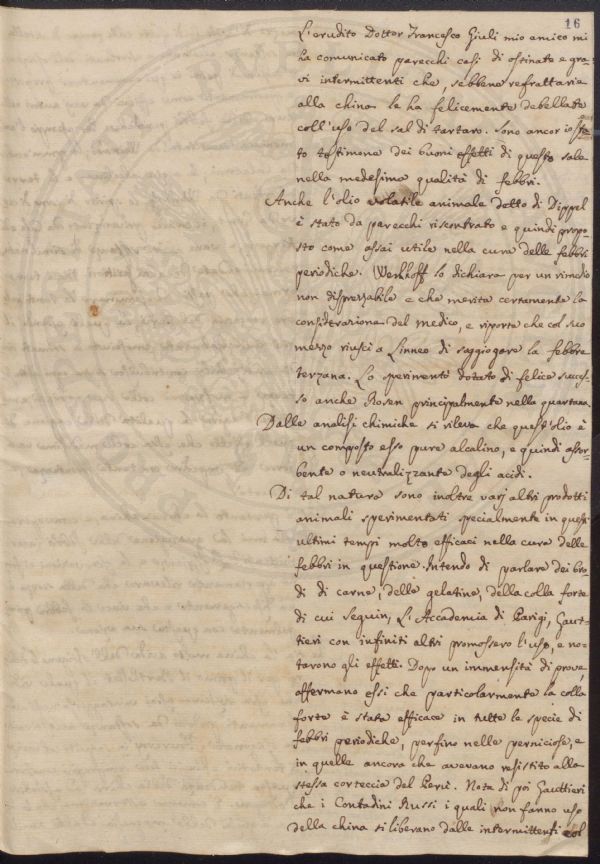 16
L'erudito Dottor Francesco Giuli mio amico mi
ha comunicato parecchi casi di ostinate e gra-
vi intermittenti che, sebbene refrattarie
alla china le ha felicemente debellate
coll'uso del sal di tartaro. Sono ancor io sta-
to testimone dei buoni effetti di questo sale
nella medesima qualità di febbri.
Anche l'olio volatile animale detto di Dippel
è stato da parecchi riscontrato e quindi propo-
sto come assai utile nella cura delle febbri
periodiche. Werlhoff lo dichiara per un rimedio
non disprezzabile e che merita certamente la
considerazione del medico, e riporta che col suo
mezzo riuscì a Linneo di soggiogare la febbre
terzana. Lo sperimentò dotato di felice succes-
so anche Rosen principalmente nella quartana
Dalle analisi chimiche si rileva che quest'olio è
un composto esso pure alcalino, e quindi assor-
bente o neutralizzante degli acidi.
Di tal natura sono inoltre varj altri prodotti
animali sperimentati specialmente in questi
ultimi tempi molto efficaci nella cura delle
febbri in questione. Intendo di parlare dei bro-
di di carne, delle gelatine, della colla forte
di cui Seguin, L'Accademia di Parigi, Gaut-
tieri con infiniti altri promossero l'uso, e no-
tarono gli effetti. Dopo un immensità di prove,
affermano essi che particolarmente la colla
forte è stata efficace in tutte le specie di
febbri periodiche, perfino nelle perniciose, e
in quelle ancora che avevano resistito alla
stessa corteccia del Perù. Nota di poi Gauttieri
che i Contadini Russi i quali non fanno uso
della china si liberano dalle intermittenti col